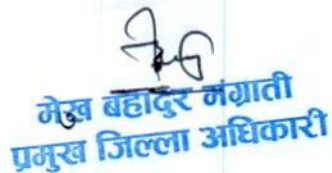 मेख बहादुर मंग्राती
प्रमुख जिल्ला अधिकारी